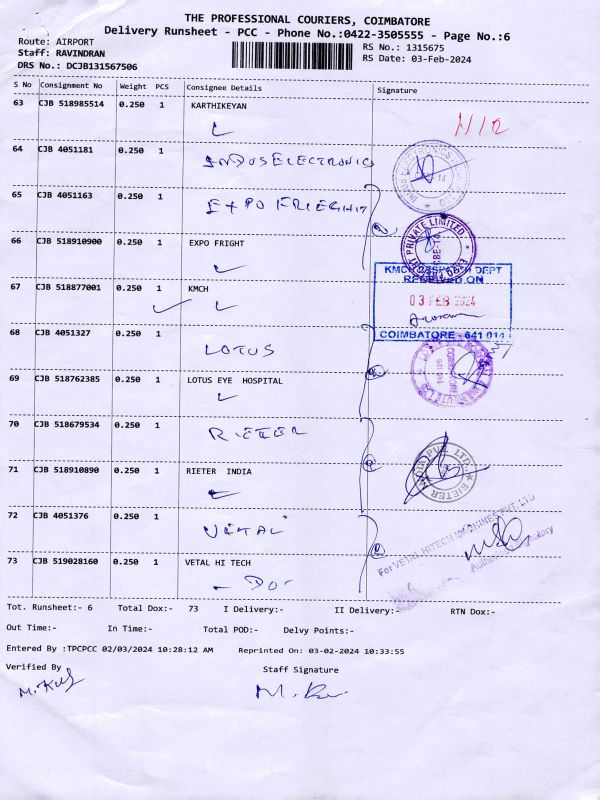 THE PROFESSIONAL COURIERS, COIMBATORE
Delivery Runsheet - PCC - Phone No.:0422-3505555 - Page No.:6
Route: AIRPORT
Staff: RAVINDRAN
DRS No.: DCJB131567506
RS No.: 1315675
RS Date: 03-Feb-2024
S No Consignment No Weight PCS Consignee Details Signature
63 CJB 518985514 0.250 1 KARTHIKEYAN
64 CJB 4051181 0.250 1 INDUS ELECTRONICS
65 CJB 4051163 0.250 1 EXPO FRIEGHT
66 CJB 518910900 0.250 1 EXPO FRIGHT
67 CJB 518877001 0.250 1 KMCH
KMCH DESPATCH DEPT
RECEIVED ON
03 FEB 2024
COIMBATORE - 641 014
68 CJB 4051327 0.250 1 LOTUS
69 CJB 518762385 0.250 1 LOTUS EYE HOSPITAL
70 CJB 518679534 0.250 1 RIETER
71 CJB 518910890 0.250 1 RIETER INDIA
72 CJB 4051376 0.250 1 VETAL
73 CJB 519028160 0.250 1 VETAL HI TECH
- Do -
For VETAL HITECH MACHINES PVT. LTD
Authorised Signatory
Tot. Runsheet:- 6 Total Dox:- 73 I Delivery:- II Delivery:- RTN Dox:-
Out Time:- In Time:- Total POD:- Delvy Points:-
Entered By :TPCPCC 02/03/2024 10:28:12 AM Reprinted On: 03-02-2024 10:33:55
Verified By Staff Signature